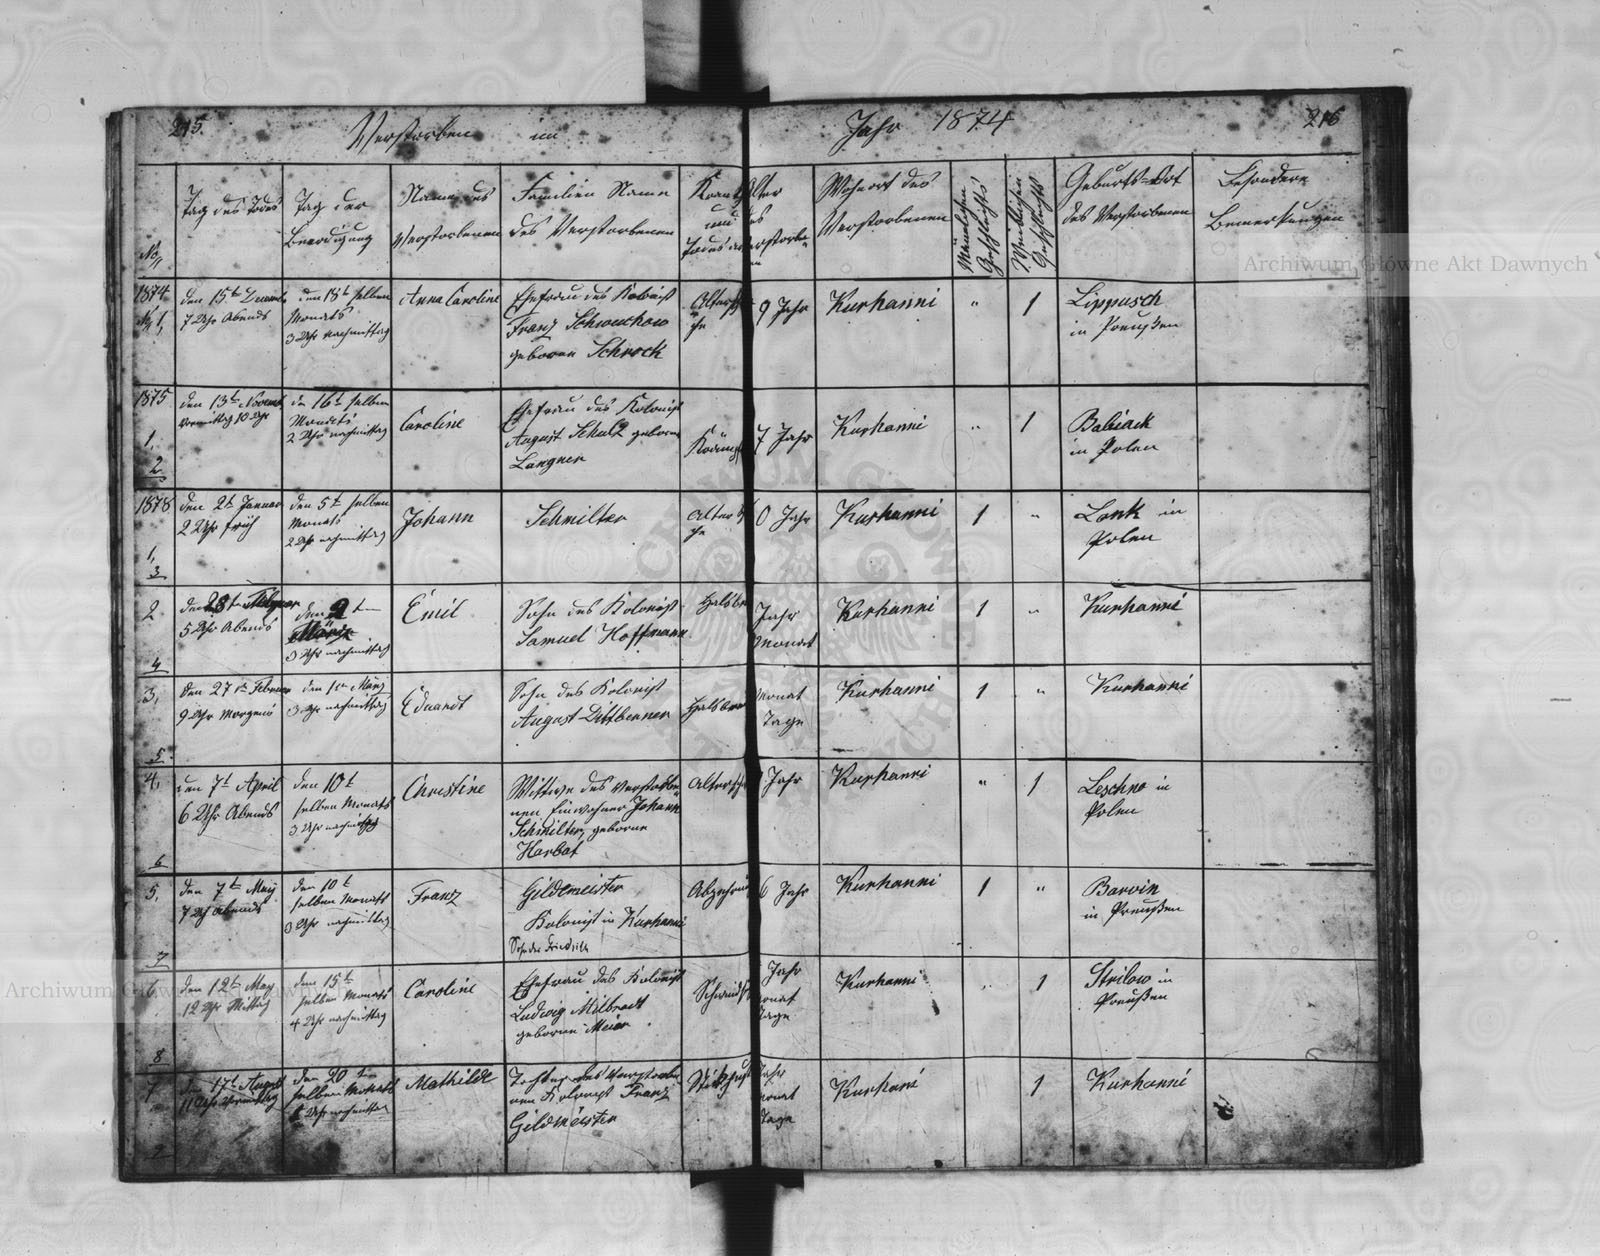 215.
Verstorben im
Jahr 1874
216
No
Tag des Todes
Tag der
Beerdigung
Name des
Verstorbenen
Familien Name
des Verstorbenen
Krank
und
Todes
Alter
des
Verstorbe
nen
Wohnort des
Verstorbenen
Männlichen
Geschlechts
Weiblichen
Geschlechts
Geburts-Ort
des Verstorbenen
Besondere
Bemerkungen
Archiwum Główne Akt Dawnych
1874
No 1,
den 15t
7 Uhr Abends
den 18t selben
Monats
3 Uhr nachmittag
Anna Caroline
Ehefrau des Kolonist
Franz Schwuchow
geborene Schrock
Altersch
che
9 Jahr
Kurhanni
"
1
Lippusch
in Preußen
1875
1.
2
den 13t Novemb
vormittag 10 Uhr
den 16t selben
Monats
2 Uhr nachmittag
Caroline
Ehefrau des Kolonist
August Schulz geborne
Langner
7 Jahr
Kurhanni
"
1
Babiack
in Polen
1878
1,
3
den 2t Januar
2 Uhr früh
den 5t selben
Monats
2 Uhr nachmittag
Johann
Schmilter
Alter
che
0 Jahr
Kurhanni
1
"
Lonk in
Polen
2
4
den 28ten Februar
5 Uhr Abends
den 2ten
März
3 Uhr nachmittag
Emil
Sohn des Kolonist
Samuel Hoffmann
Halsbr
Jahr
Monat
Kurhanni
1
"
Kurhanni
3,
5
den 27ten Februar
9 Uhr Morgens
den 1ten März
3 Uhr nachmittag
Eduardt
Sohn des Kolonist
August Dittbenner
Halsbr
Monat
Tage
Kurhanni
1
"
Kurhanni
4,
6
den 7t April
6 Uhr Abends
den 10t
selben Monats
3 Uhr nachmittag
Christine
Wittwe des verstorbe
nen Einwohner Johann
Schmilter, geborne
Harbat
Altersch
Jahr
Kurhanni
"
1
Leschno in
Polen
5,
7
den 7t Maÿ
7 Uhr Abends
den 10t
selben Monats
3 Uhr nachmittag
Franz
Gildemeister
Kolonist in Kurhanni
Sohn des Friedrich
Abzehrun
6 Jahr
Kurhanni
1
"
Barvin
in Preußen
6,
8
den 12t May
12 Uhr Mittag
den 15t
selben Monats
4 Uhr nachmittag
Caroline
Ehefrau des Kolonist
Ludwig Milbradt
geborne Meier
Schwinds
Jahr
Monat
Tage
Kurhanni
"
1
Strilow in
Preußen
Archiwum Główne Akt Dawnych
7
den 17t August
11 Uhr Vormittag
den 20ten
selben Monats
Uhr nachmittag
Mathilde
Tochter des Verstorbe
nen Kolonist Franz
Gildmeister
Jahr
Monat
Tage
Kurhani
1
Kurhanni